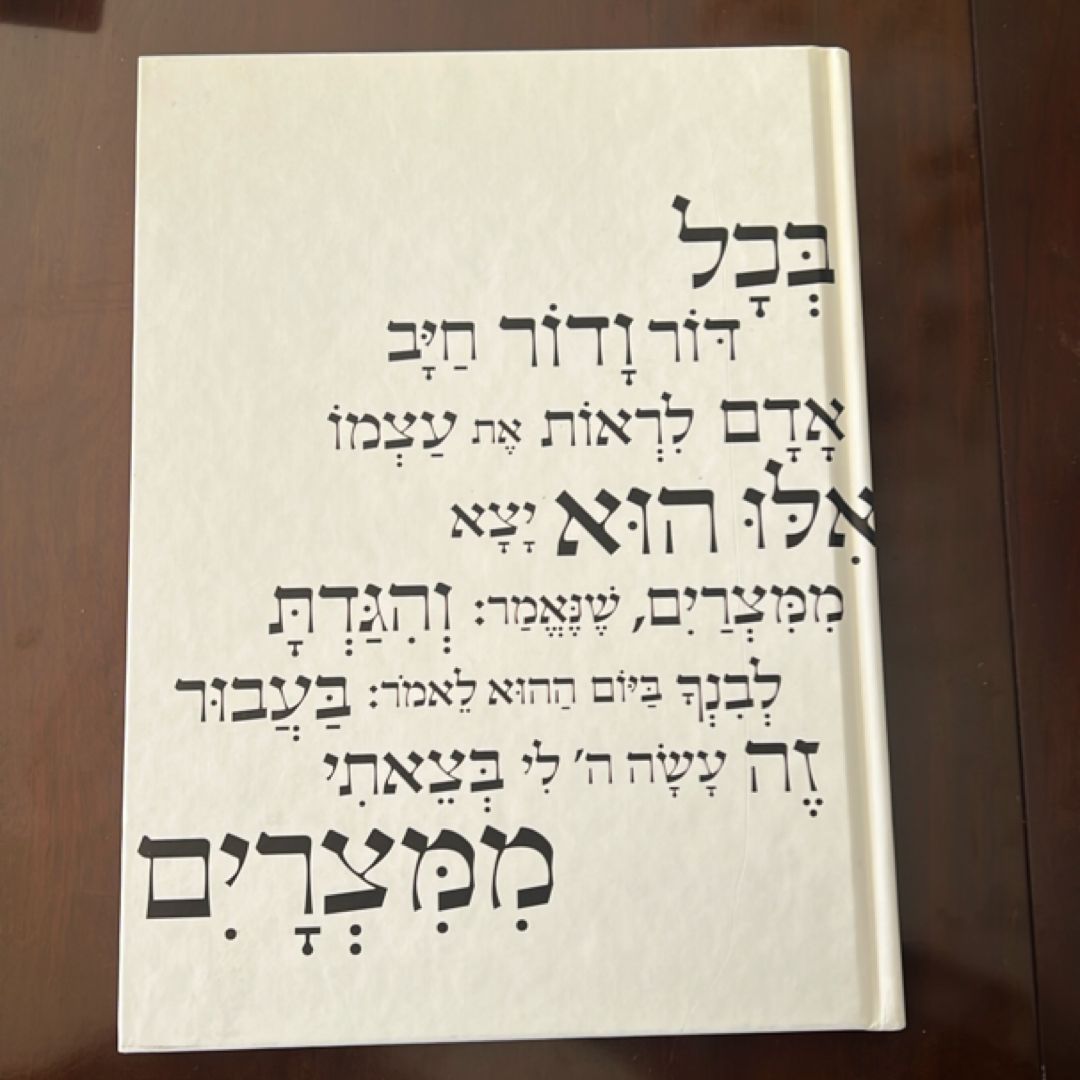 בְּכָל
דּוֹר וָדוֹר חַיָּב
אָדָם לִרְאוֹת אֶת עַצְמוֹ
אִלּוּ הוּא יָצָא
מִמִּצְרַיִם, שֶׁנֶּאֱמַר: וְהִגַּדְתָּ
לְבִנְךָ בַּיּוֹם הַהוּא לֵאמֹר: בַּעֲבוּר
זֶה עָשָׂה ה׳ לִי בְּצֵאתִי
מִמִּצְרָיִם